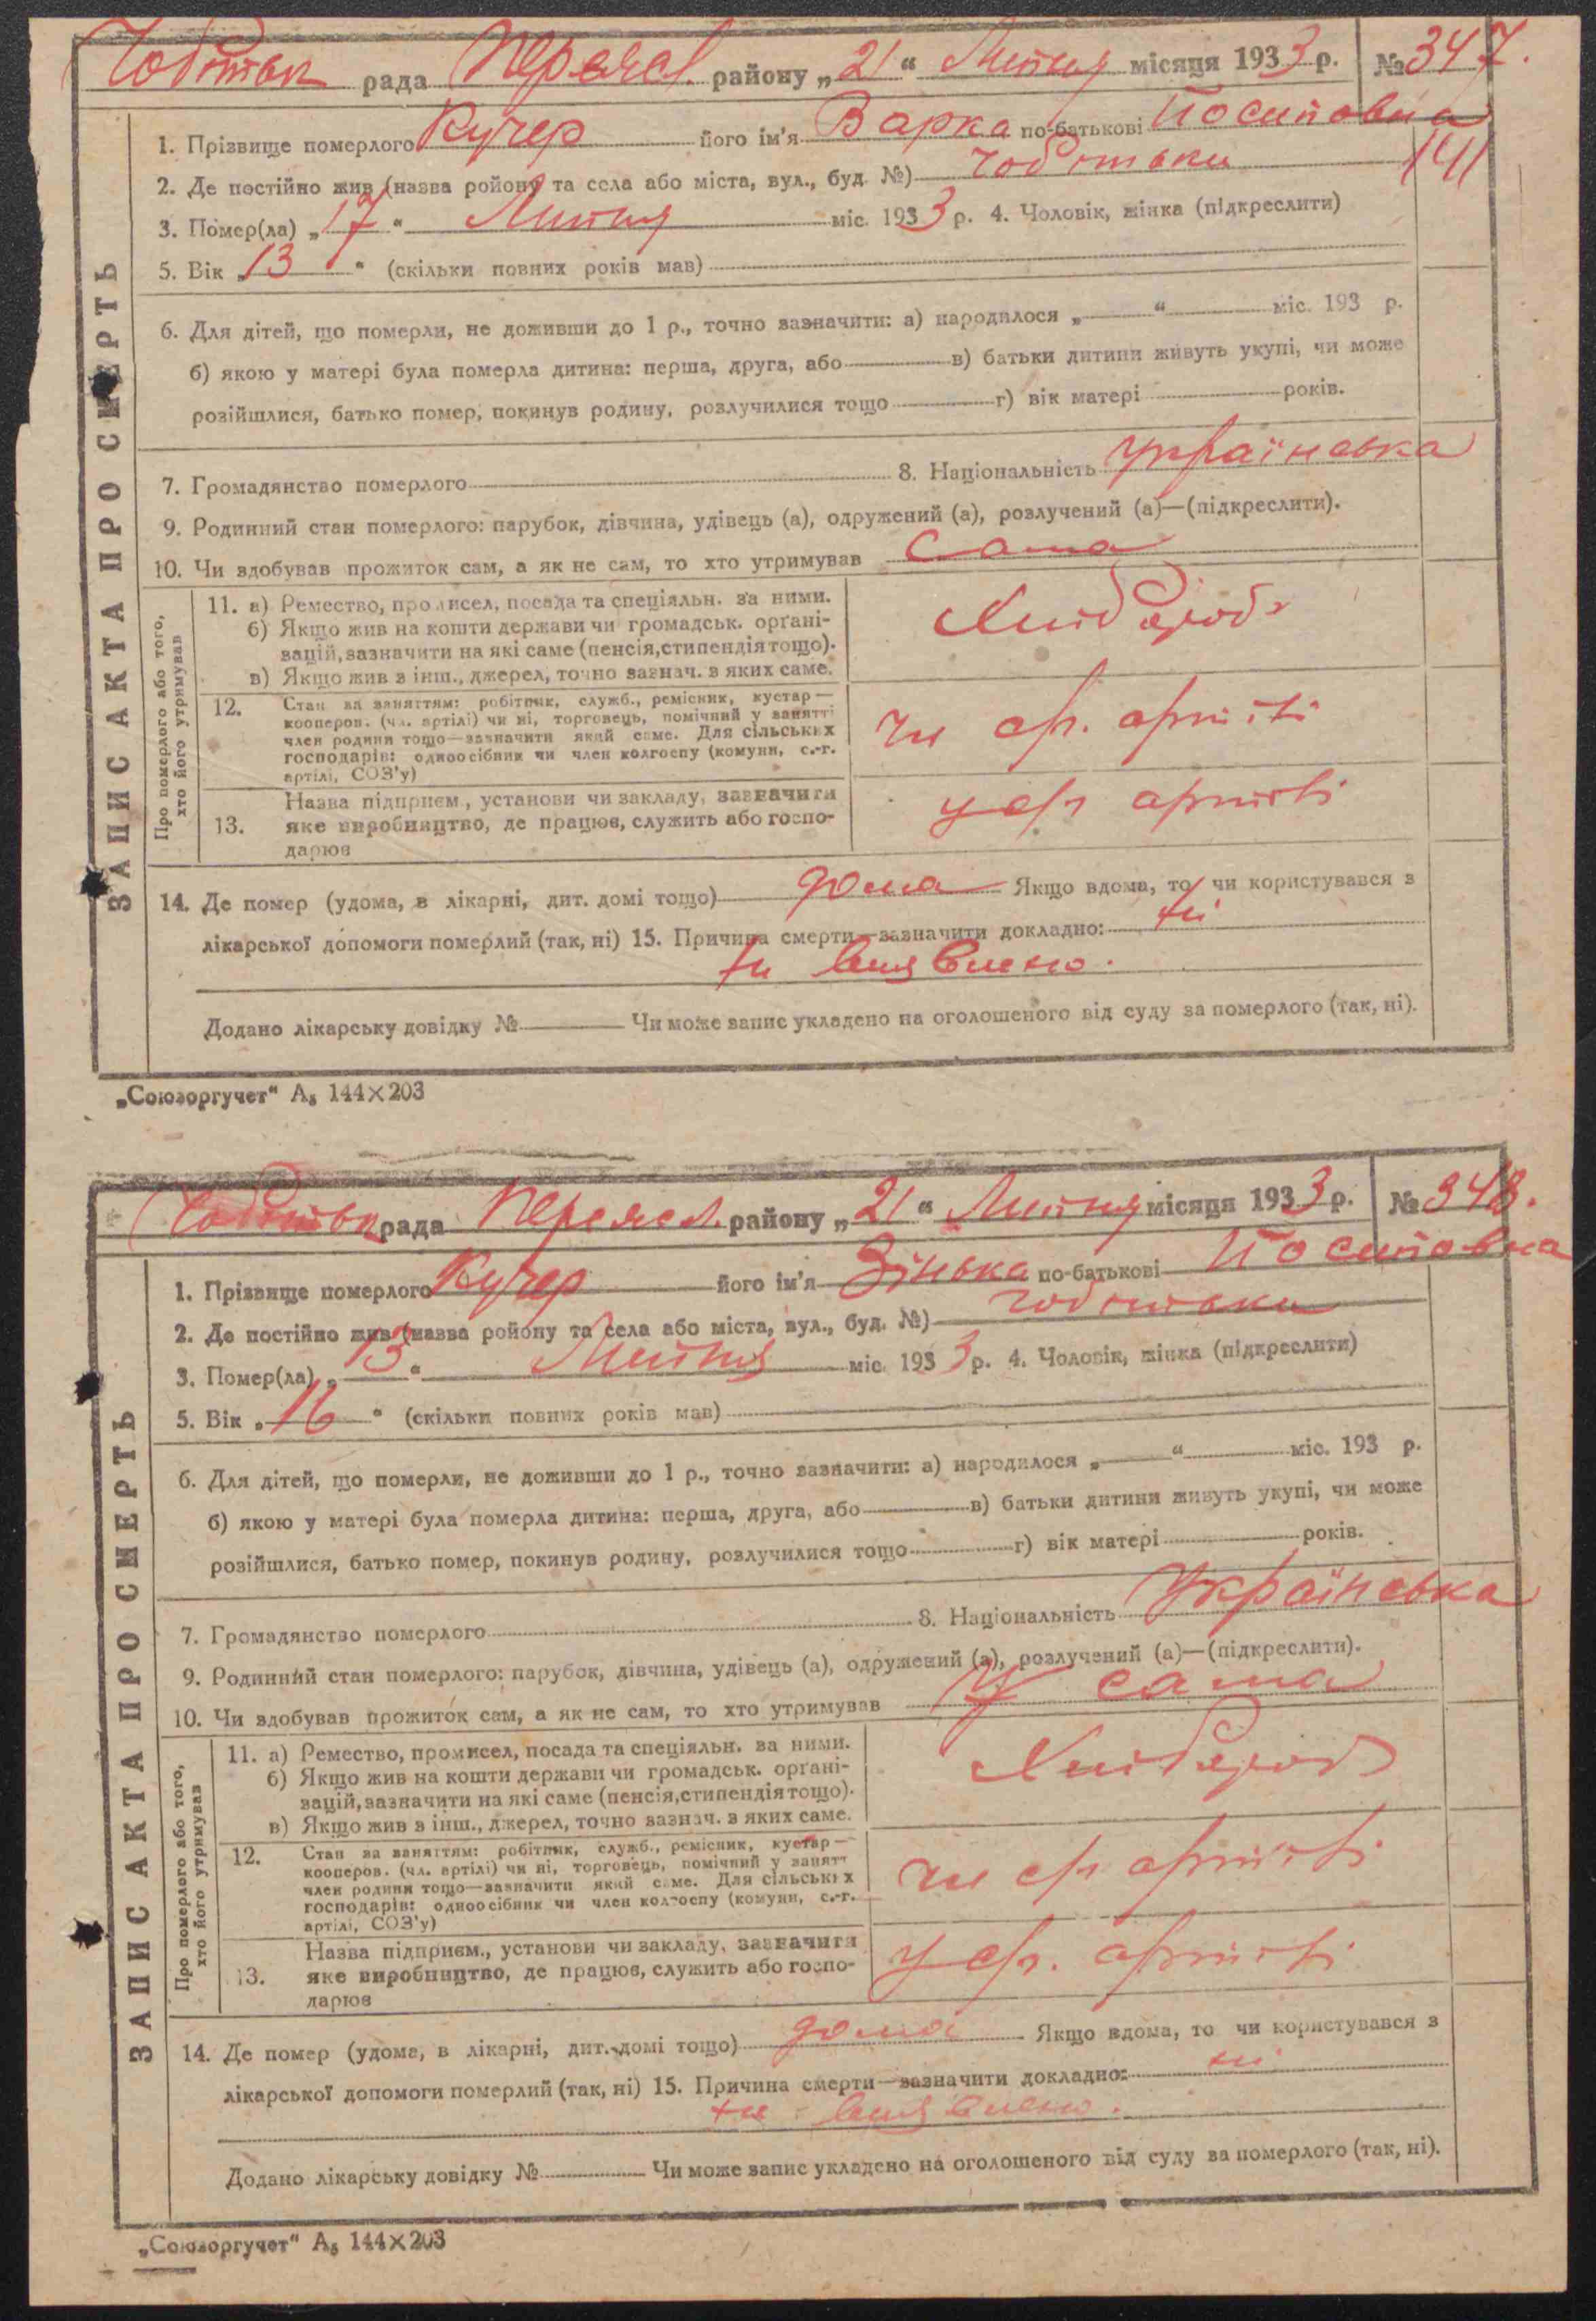 рада Переясл. району „21“ Липня місяця 1933 р. №347.
1. Прізвище померлого Кучер його ім'я Варка по-батькові Йосиповна
141
2. Де постійно жив (назва ройону та села або міста, вул., буд. №)
3. Помер(ла) „17“ Липня міс. 1933 р. 4. Чоловік, жінка (підкреслити)
5. Вік „13“ (скільки повних років мав)
6. Для дітей, що померли, не доживши до 1 р., точно зазначити: а) народилося „ “ міс. 193 р.
б) якою у матері була померла дитина: перша, друга, або в) батьки дитини живуть укупі, чи може
розійшлися, батько помер, покинув родину, розлучилися тощо г) вік матері років.
7. Громадянство померлого 8. Національність українська
9. Родинний стан померлого: парубок, дівчина, удівець (а), одружений (а), розлучений (а)—(підкреслити).
10. Чи здобував прожиток сам, а як не сам, то хто утримував сама
ЗАПИС АКТА ПРО СМЕРТЬ
Про померлого або того,
хто його утримував
11. а) Ремество, промисел, посада та спеціяльн. за ними. Хлібороб
б) Якщо жив на кошти держави чи громадськ. орґані-
зацій, зазначити на які саме (пенсія, стипендія тощо).
в) Якщо жив з інш., джерел, точно зазнач. з яких саме.
12. Стан за заняттям: робітник, служб., ремісник, кустар—
кооперов. (чл. артілі) чи ні, торговець, помічний у занятті
член родини тощо—зазначити який саме. Для сільських
господарів: одноосібник чи член колгоспу (комуни, с.-г.
артілі, СОЗ'у)
13. Назва підприєм., установи чи закладу, зазначити
яке виробництво, де працює, служить або госпо-
дарює
14. Де помер (удома, в лікарні, дит. домі тощо) дома Якщо вдома, то чи користувався з
лікарської допомоги померлий (так, ні) 15. Причина смерти—зазначити докладно: ні
не виявлено.
Додано лікарську довідку № Чи може запис укладено на оголошеного від суду за померлого (так, ні).
„Союзоргучет“ А₅ 144×203
рада Переясл. району „21“ Липня місяця 1933 р. №348.
1. Прізвище померлого Кучер його ім'я Зінька по-батькові Йосиповна
2. Де постійно жив (назва ройону та села або міста, вул., буд. №)
3. Помер(ла) „13“ Липня міс. 1933 р. 4. Чоловік, жінка (підкреслити)
5. Вік „16“ (скільки повних років мав)
6. Для дітей, що померли, не доживши до 1 р., точно зазначити: а) народилося „ “ міс. 193 р.
б) якою у матері була померла дитина: перша, друга, або в) батьки дитини живуть укупі, чи може
розійшлися, батько помер, покинув родину, розлучилися тощо г) вік матері років.
7. Громадянство померлого 8. Національність Українська
9. Родинний стан померлого: парубок, дівчина, удівець (а), одружений (а), розлучений (а)—(підкреслити).
10. Чи здобував прожиток сам, а як не сам, то хто утримував сама
ЗАПИС АКТА ПРО СМЕРТЬ
Про померлого або того,
хто його утримував
11. а) Ремество, промисел, посада та спеціяльн. за ними. Хлібороб
б) Якщо жив на кошти держави чи громадськ. орґані-
зацій, зазначити на які саме (пенсія, стипендія тощо).
в) Якщо жив з інш., джерел, точно зазнач. з яких саме.
12. Стан за заняттям: робітник, служб., ремісник, кустар—
кооперов. (чл. артілі) чи ні, торговець, помічний у занятт
член родини тощо—зазначити який саме. Для сільських
господарів: одноосібник чи член колгоспу (комуни, с.-г.
артілі, СОЗ'у)
13. Назва підприєм., установи чи закладу, зазначити
яке виробництво, де працює, служить або госпо-
дарює
14. Де помер (удома, в лікарні, дит. домі тощо) дома Якщо вдома, то чи користувався з
лікарської допомоги померлий (так, ні) 15. Причина смерти—зазначити докладно: ні
не виявлено.
Додано лікарську довідку № Чи може запис укладено на оголошеного від суду за померлого (так, ні).
„Союзоргучет“ А₅ 144×203